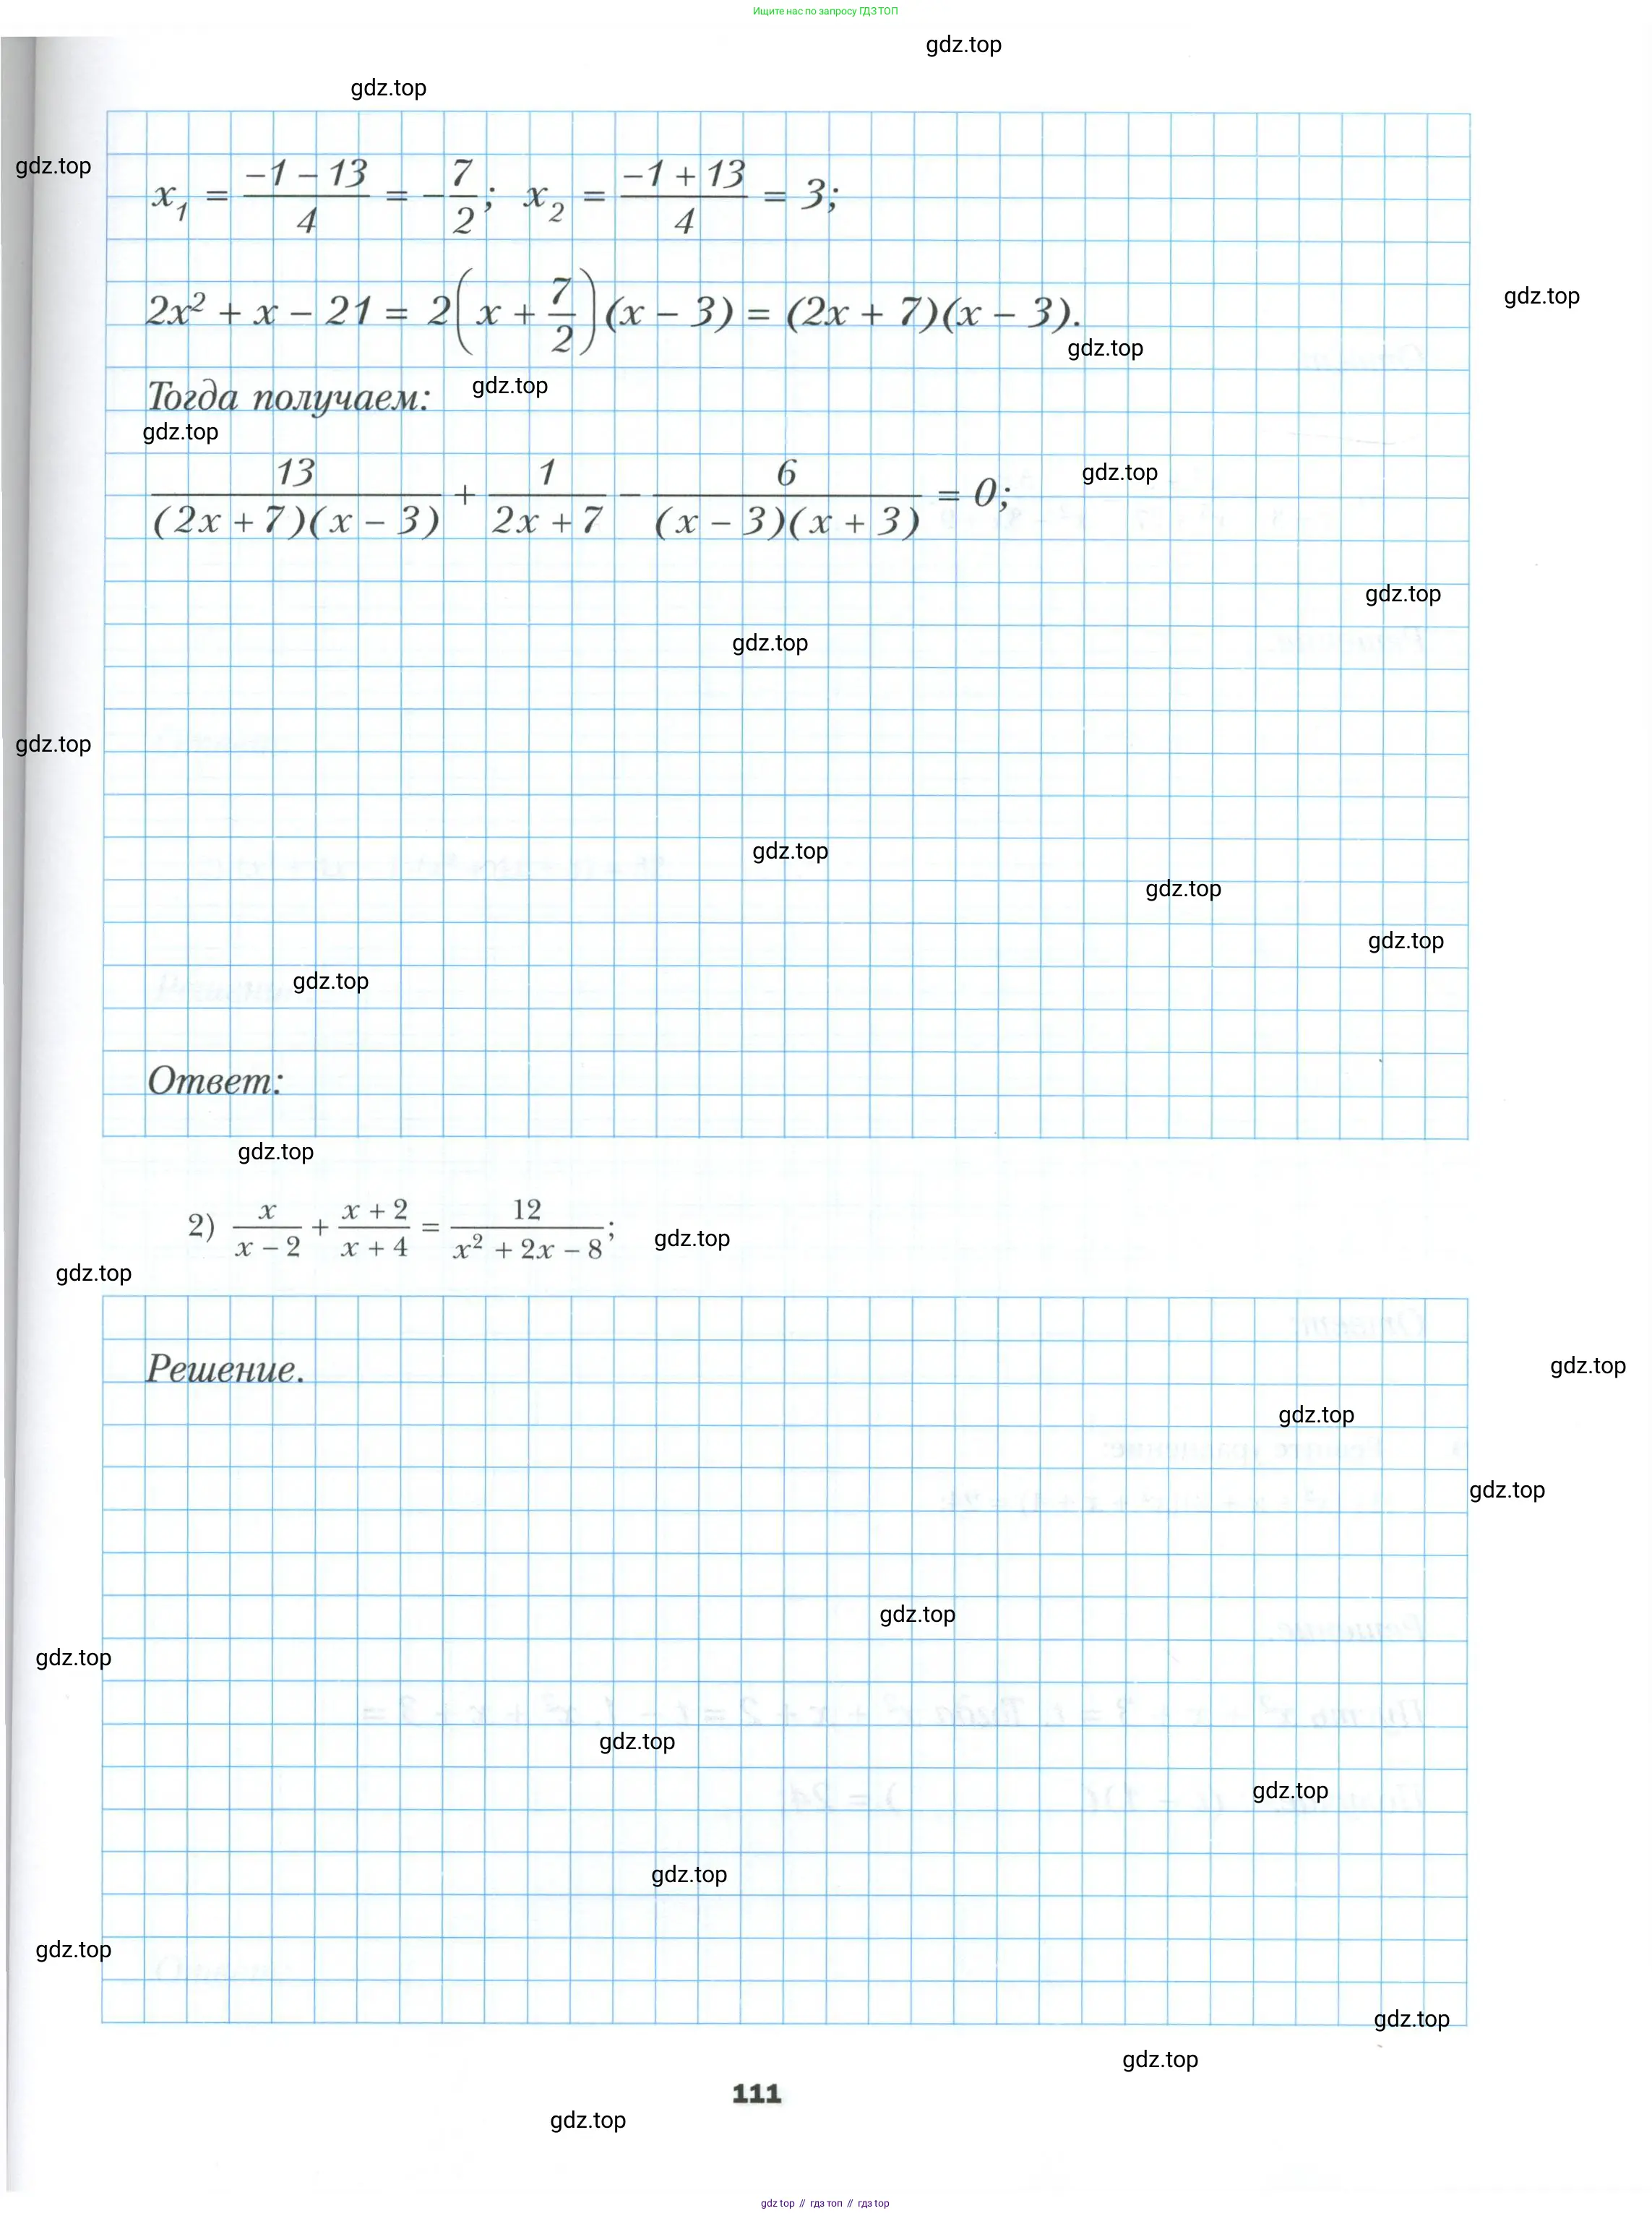 Ищите нас по запросу ГДЗ ТОП
gdz.top
gdz.top
gdz.top
x₁ = (−1 − 13)/4 = −7/2; x₂ = (−1 + 13)/4 = 3;
gdz.top
2x² + x − 21 = 2(x + 7/2)(x − 3) = (2x + 7)(x − 3).
gdz.top
Тогда получаем:
gdz.top
gdz.top
13/((2x + 7)(x − 3)) + 1/(2x + 7) − 6/((x − 3)(x + 3)) = 0;
gdz.top
gdz.top
gdz.top
gdz.top
gdz.top
gdz.top
gdz.top
gdz.top
Ответ:
gdz.top
2) x/(x − 2) + (x + 2)/(x + 4) = 12/(x² + 2x − 8);
gdz.top
gdz.top
Решение.
gdz.top
gdz.top
gdz.top
gdz.top
gdz.top
gdz.top
gdz.top
gdz.top
gdz.top
gdz.top
gdz.top
111
gdz.top
gdz top // гдз топ // гдз top